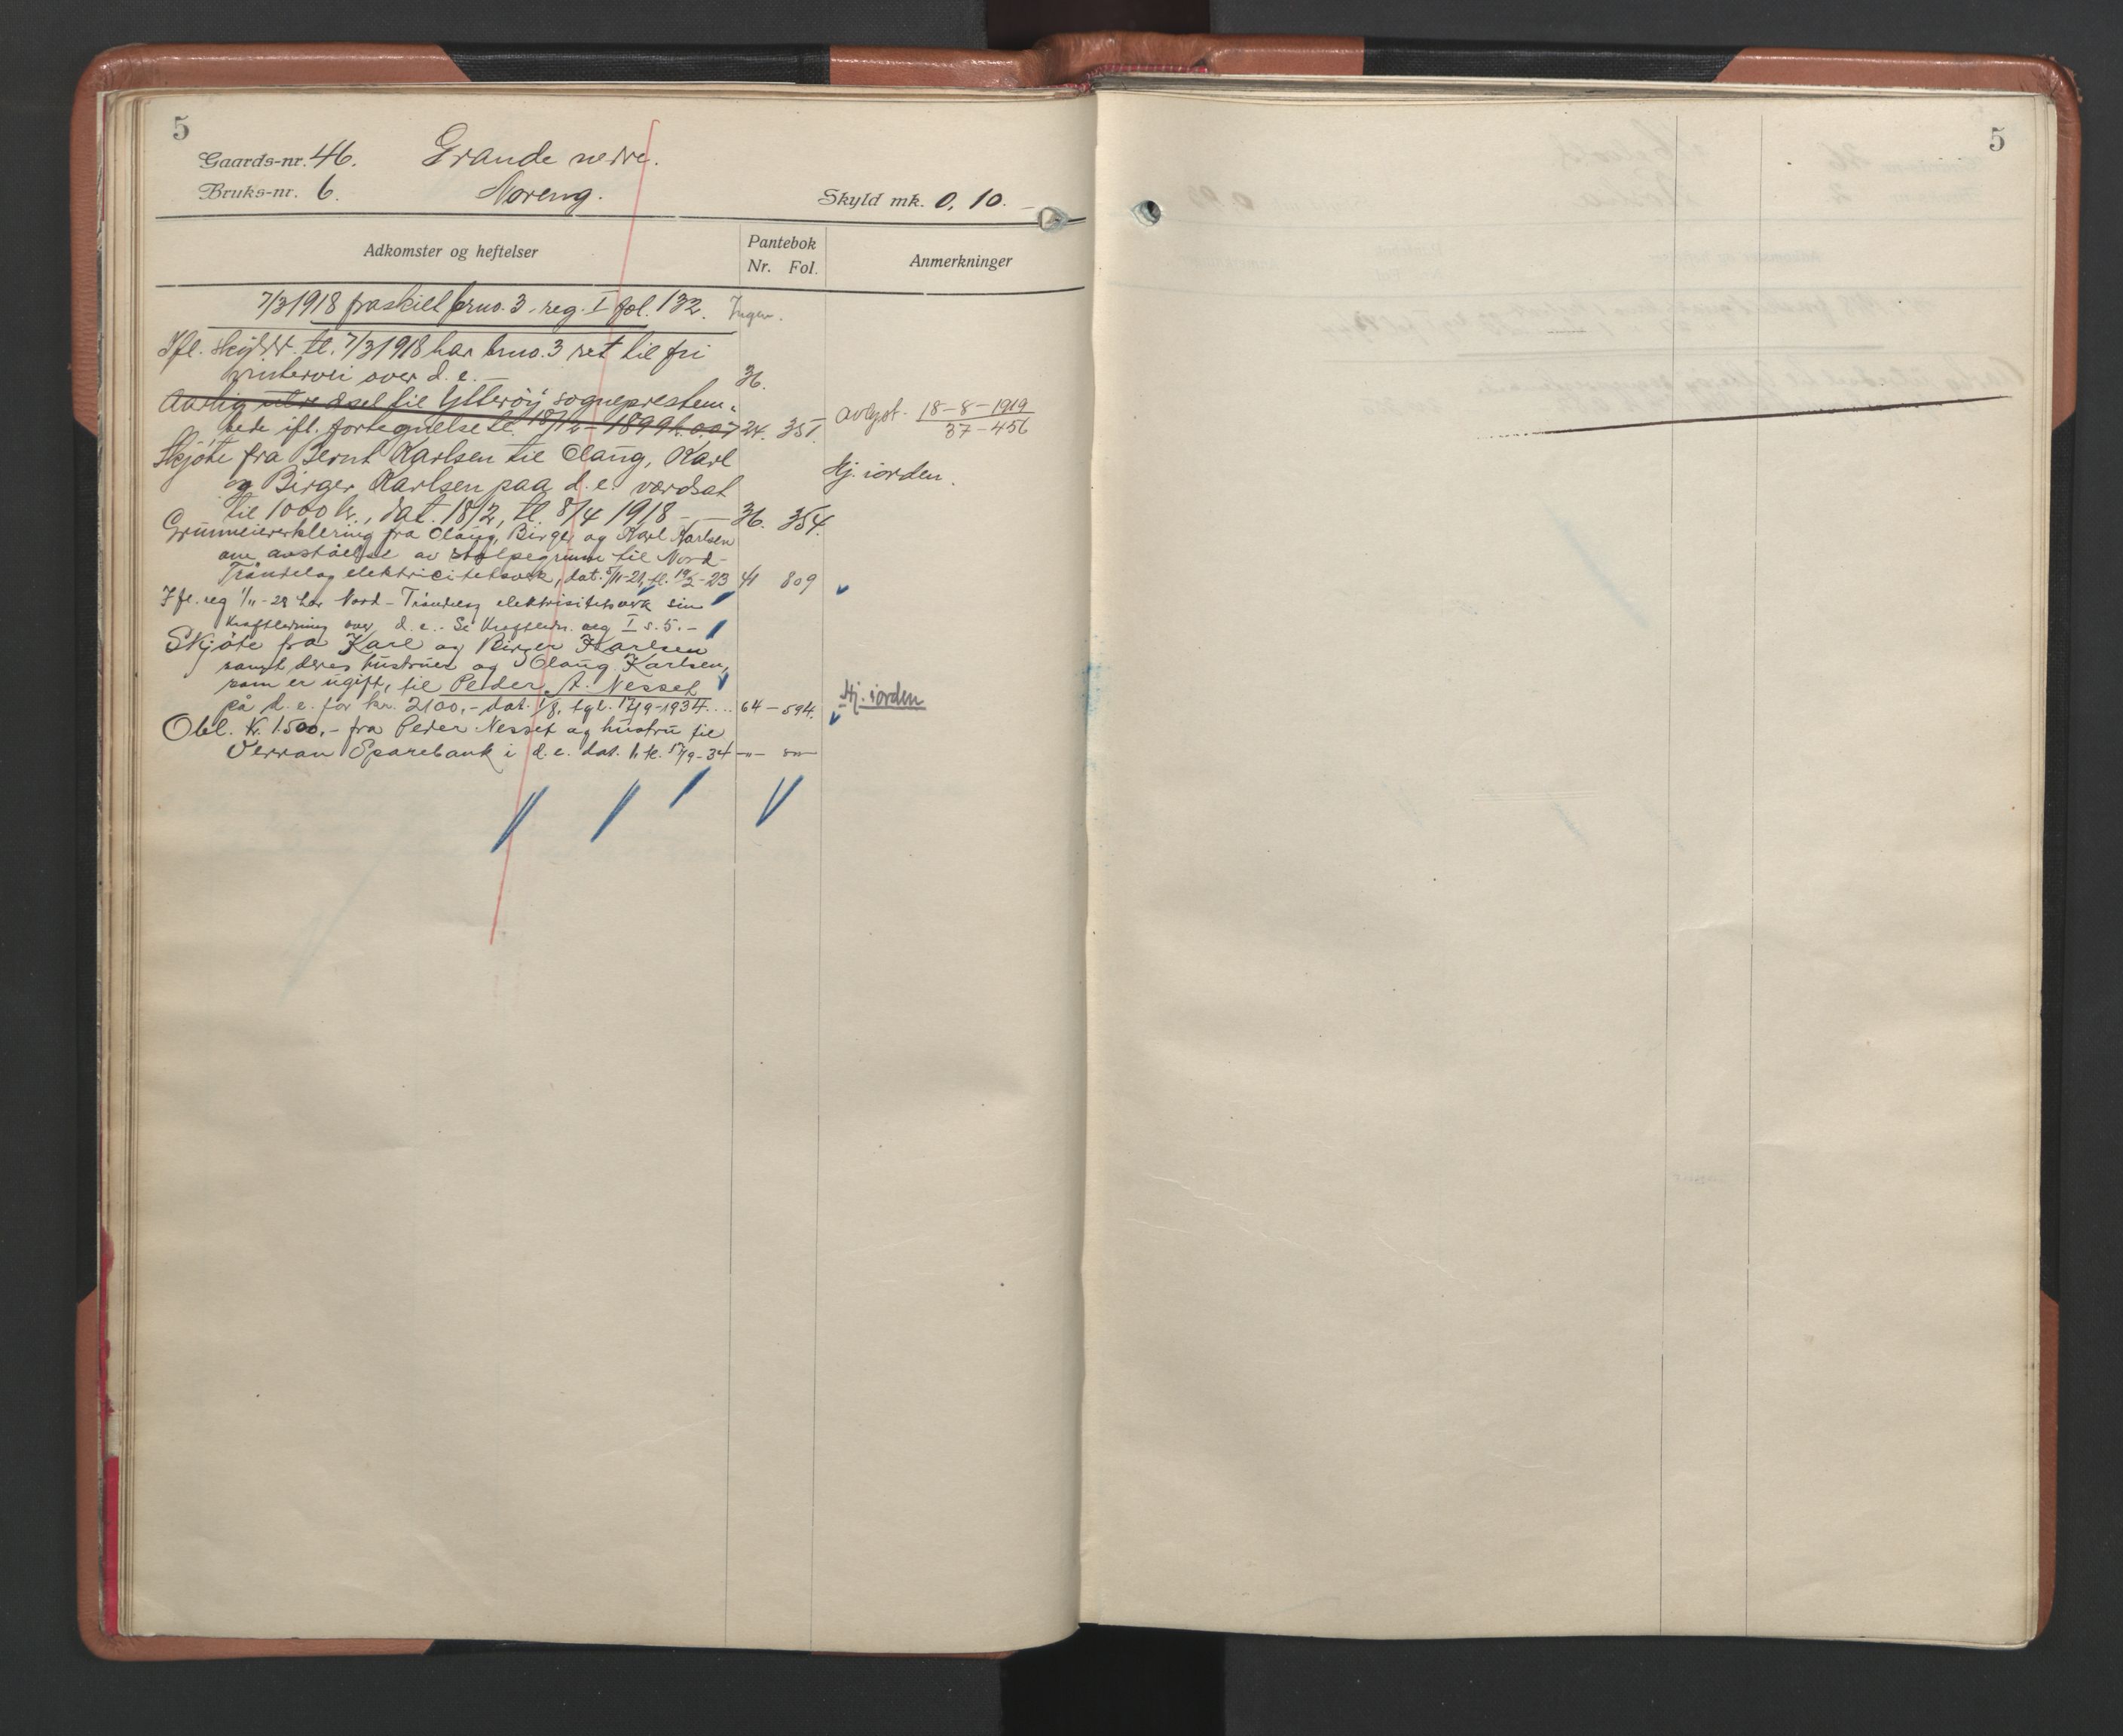 5
Gaards-nr. 46. Grande nedre.
Bruks-nr. 6. Noreng.
Skyld mk. 0,10.
Adkomster og heftelser
Pantebok
Nr. Fol.
Anmerkninger
7/3 1918 fraskilt brno. 3 - reg. I fol. 132. Ingen.
Ifl. skyldd. tl. 7/3 1918 har brno. 3 ret til fri
vintervei over d. e. — 36.
Aarlig utredsel til Ytterøy sogneprestem-
bede ifl. fortegnelse tl. 1899 k. 0.07 24. 351. avlyst. 18-8-1919
37-456
Skjøte fra Bernt Karlsen til Olaug, Karl
og Birger Karlsen paa d. e. værdsat Hj. iorden.
til 1000 kr., dat. 18/2, tl. 8/4 1918 — 36. 354.
Grunneiererklering fra Olaug, Birger og Karl Karlsen
om avståelse av stolpegrunn til Nord-
Trøndelag elektricitetsverk, dat. 5/11-21, tl. 19/2-23 41 809
Ifl. reg 1/11-28 har Nord-Trøndelag elektrisitetsverk sin
kraftledning over d. e. - Se Kraftledn. reg I s. 5. -
Skjøte fra Karl og Birger Karlsen
samt deres hustruer og Olaug Karlsen,
som er ugift, til Peder A. Nesset
på d. e. for kr. 2100,- dat. 1/8, tgl. 17/9-1934.... 64 - 594. Hj. iorden
Obl. Kr. 1.500,- fra Peder Nesset og hustru til
Verran Sparebank i d. e. dat. 1, tl. 17/9-34 —"—
5